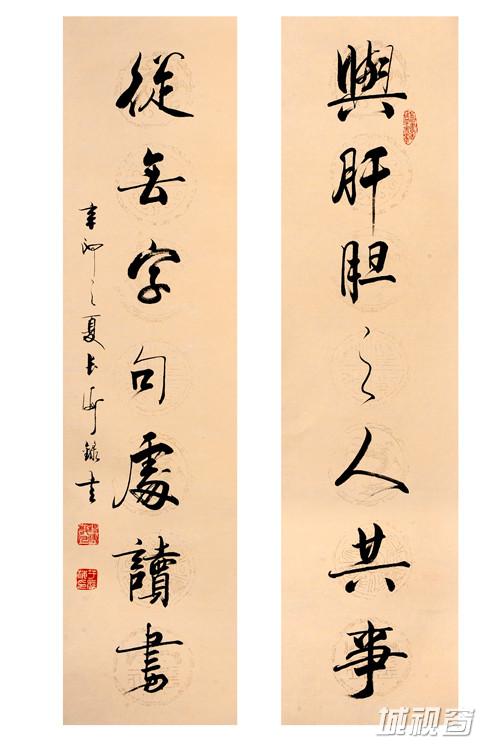 與肝胆之人共事
從無字句處讀書
辛卯之夏長海錄書
城视窗